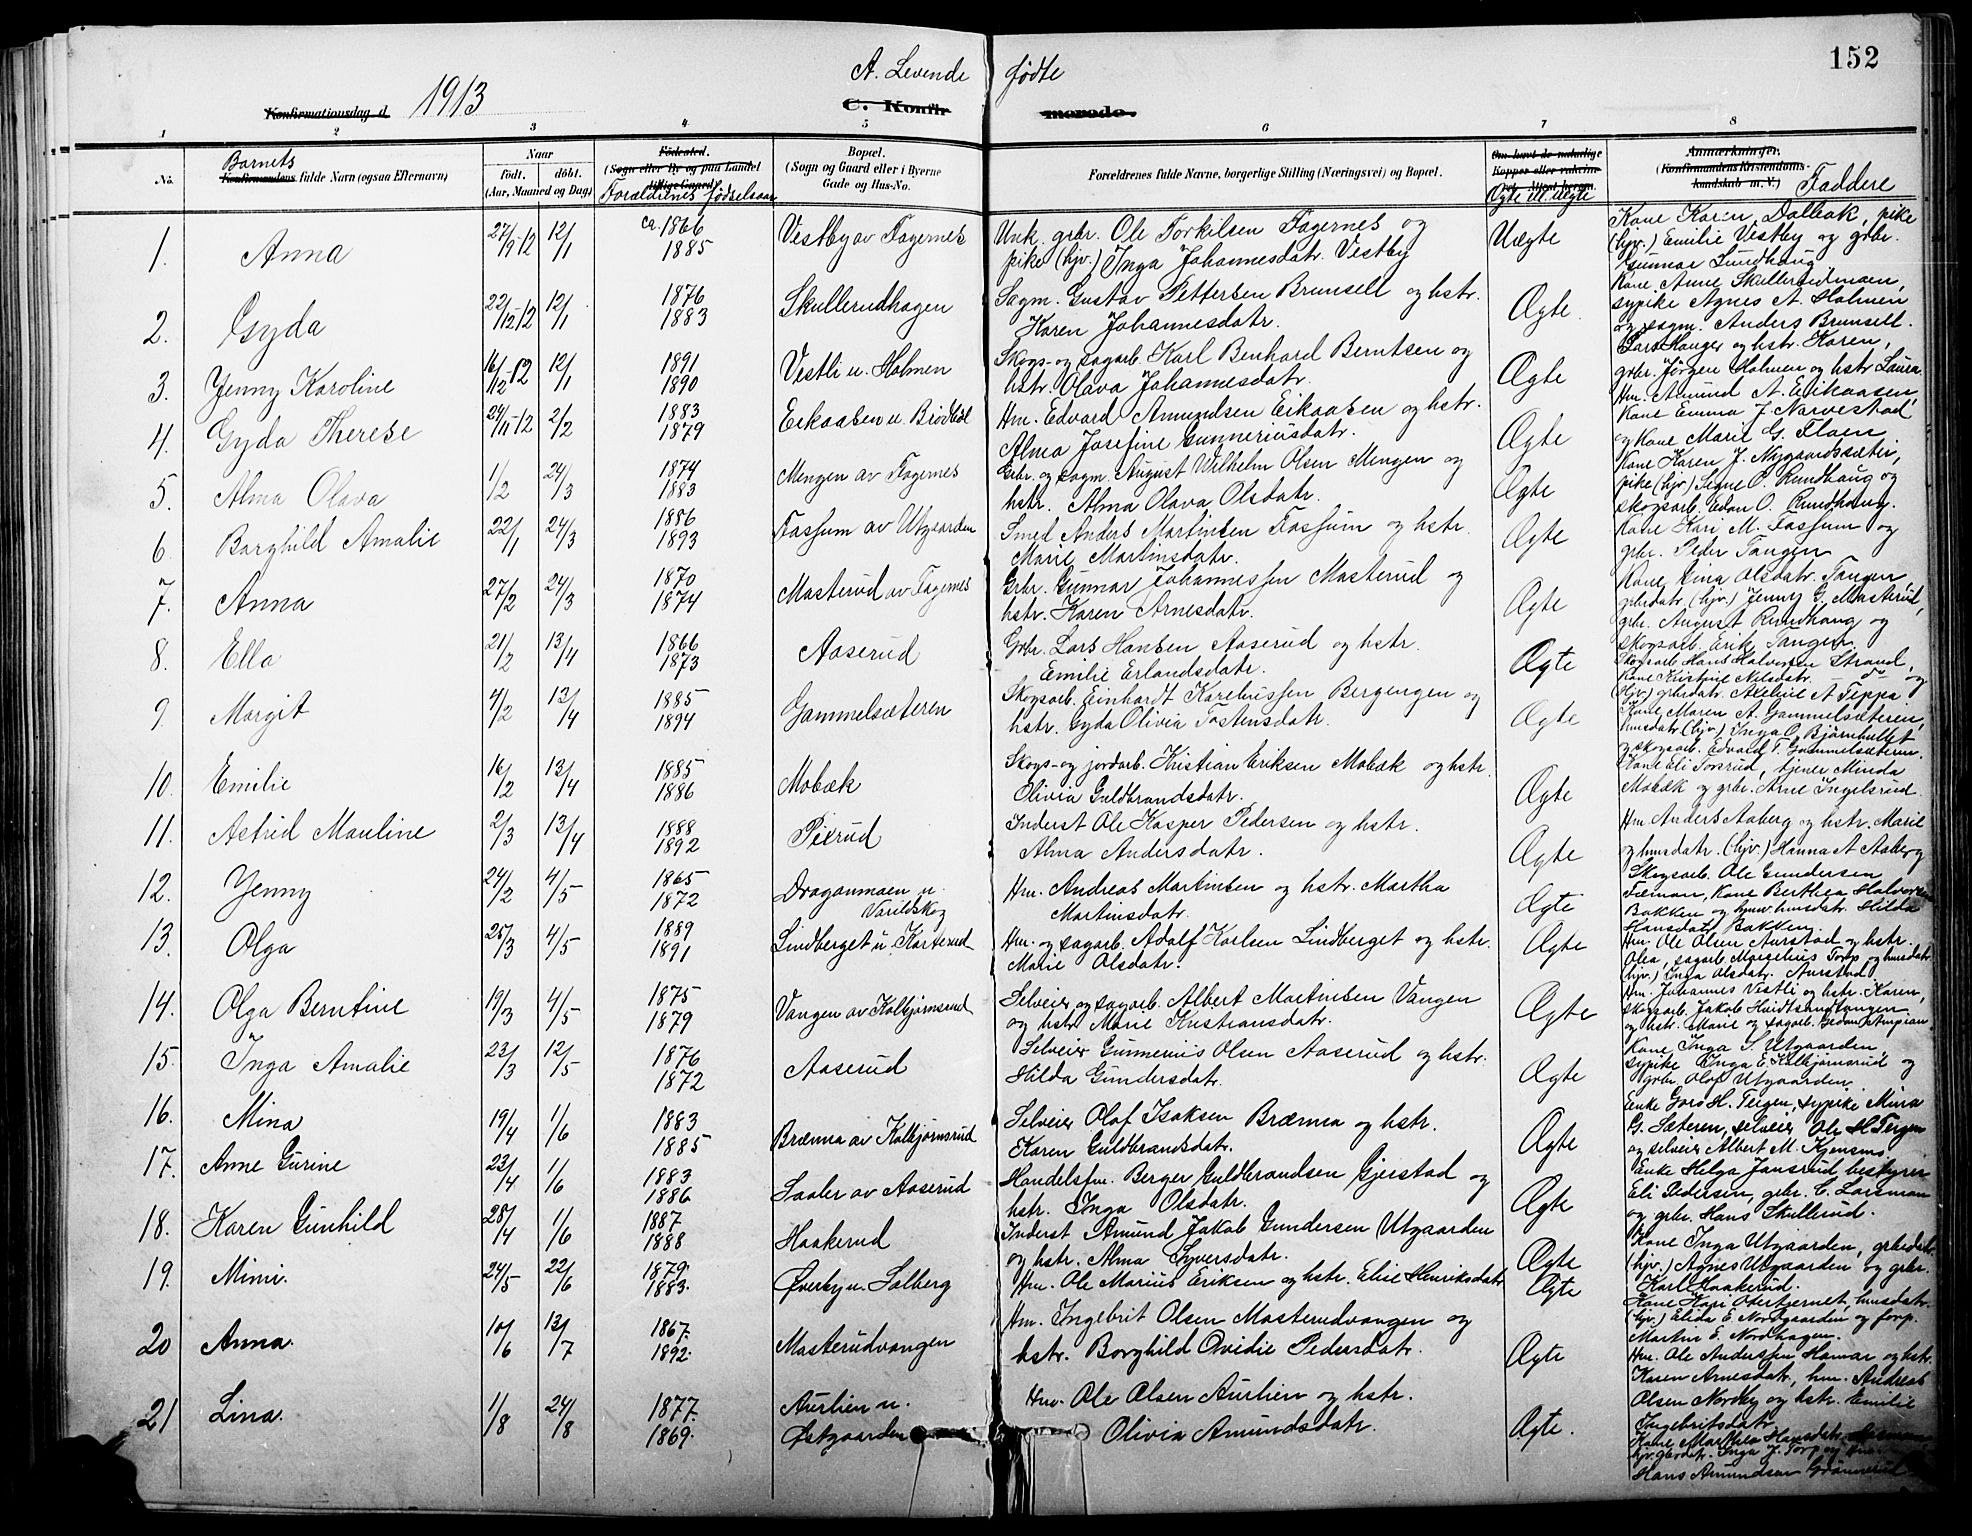 152
A. Levende fødte
1913
Konfirmationsdag d.
C. Konfirmerede.
1 2 3 4 5 6 7 8
No.
Barnets
Konfirmandens fulde Navn (ogsaa Efternavn)
Naar
født. døbt.
(Aar, Maaned og Dag)
Fødested.
(Sogn eller By og paa Landet
Forældrenes fødselsaar
Bopæl.
(Sogn og Gaard eller i Byerne
Gade og Hus-No.
Forældrenes fulde Navne, borgerlige Stilling (Næringsvei) og Bopæl.
Om havt de naturlige
Kopper eller vaccine
Ægte el. uægte
Anmærkninger.
(Konfirmandens Kristendoms-
kundskab m. V.)
Faddere
1. Anna 27/9-12 12/1 ca. 1866 1885 Vestby av Fagernes
Unk. grbr. Ole Torkilsen Fagernes og
pike (hjv.) Inga Johannesdatr. Vestby
Uægte
Kone Karin Dalbak, pike
(hjv.) Emilie Vestby og grbr.
Gunnar Sundhaug
2. Gyda 22/12-12 12/1 1876 1883 Skullerudhagen
Sagm. Gustav Pettersen Brunsell og hstr.
Karen Johannesdatr.
Ægte
Kone Anne Skullerudmoen,
sypike Agnes A. Holmen
og sagm. Anders Brunsell.
3. Jenny Karoline 16/12-12 12/1 1891 1890 Vestli u. Holmen
Skogs- og sagarb. Karl Benhard Berntsen og
hstr. Olava Johannesdatr.
Ægte
Lars Hauger og hstr. Karen,
grbr. Jørgen Holmen og hstr Laura.
4. Gyda Therese 24/11-12 2/2 1883 1879 Eikaasen u. Brødbøl
Hm. Edvard Amundsen Eikaasen og hstr.
Alma Josefine Gunneriusdatr.
Ægte
Hm. Amund A. Eikaasen,
Kone Emma J. Narvestad
og Kone Marie G. Floen
5. Alma Olava 1/2 24/3 1874 1883 Mengen av Fagernes
Grbr. og sagm. August Wilhelm Olsen Mengen og
hstr. Alma Olava Olsdatr.
Ægte
Kone Karen J. Nygaardssæter,
pike (hjv.) Signe O. Rundhaug og
skogsarb. Edan O. Rundhaug.
6. Borghild Amalie 22/1 24/3 1886 1893 Fossum av Utgaarden
Smed Anders Martinsen Fossum og hstr.
Marie Martinsdatr.
Ægte
Kone Kari M. Fossum og
grbr. Peder Tangen
7. Anna 27/2 24/3 1870 1874 Masterud av Fagernes
Grbr. Gunnar Johannessen Masterud og
hstr. Karen Arnesdatr.
Ægte
Kone Lina Olsdatr. Tangen,
grbrdatr. (hjv.) Jenny G. Masterud,
grbr. August Rundhaug og
skogsarb. Erik Tangen
8. Ella 21/2 13/4 1866 1873 Aaserud
Grbr. Lars Hansen Aaserud og hstr.
Emilie Erlandsdatr.
Ægte
Skogsarb. Hans Halvorsen Strand,
Kone Kristine Nilsdatr. og
(hjv.) grbrdatr. A Teppa
9. Margit 4/2 13/4 1885 1894 Gammelsæteren
Skogsarb. Einhardt Kareliussen Bergengen og
hstr. Gyda Olivia Tostensdatr.
Ægte
Kone Maren A. Gammelsæteren,
husdatr (hjv.) Inga O. Bjørnhullet
og skogsarb. Edvard T. Gammelsæteren.
10. Emilie 16/2 13/4 1885 1886 Mobæk
Skogs- og jordarb. Kristian Eriksen Mobæk og hstr.
Olivia Guldbrandsdatr.
Ægte
Kone Eli Torsrud, tjener Minda
Mobæk og grbr. Arne Ingelsrud.
11. Astrid Mauline 2/3 13/4 1888 1892 Pixrud
Inderst Ole Kasper Pedersen og hstr.
Alma Andersdatr.
Ægte
Hm Anders Aaberg og hstr. Marie
og husdatr. (hjv.) Hanna A Aaberg
12. Jenny 24/2 4/5 1865 1872 Dragonmoen u. Varildskog
Hm. Andreas Martinsen og hstr. Martha
Martinsdatr.
Ægte
Skogsarb. Ole Gundersen
Kone Berthea Halvorsen
Bakken og husdatr. Hilda
Hansdatr. Bakken
13. Olga 25/3 4/5 1889 1891 Lindberget u. Karterud
Hm. og sagarb. Adolf Karlsen Lindberget og hstr.
Marie Olsdatr.
Ægte
Hm. Ole Olsen Aurstad og hstr.
Olea, sagarb. Torp og husdatr.
(hjv.) Inga Olsdatr. Aurstad
14. Olga Berntine 19/3 4/5 1875 1879 Vangen av Kolbjørnsrud
Selveier og sagarb. Albert Martinsen Vangen
og hstr. Marie Kristiansdatr.
Ægte
Hm. Johannes Vestli og hstr. Karen,
skogsarb. Jakob
og hstr. Marie og sagarb.
15. Inga Amalie 23/3 12/5 1876 1872 Aaserud
Selveier Gunnerius Olsen Aaserud og hstr.
Hilda Gundersdatr.
Ægte
Kone Inga S. Utgaarden,
sypike Inga E. Kolbjørnsrud og
grbr. Olof Utgaarden.
16. Mina 19/4 1/6 1883 1885 Brænna av Kolbjørnsrud
Selveier Olof Isaksen Brænna og hstr.
Karen Guldbrandsdatr.
Ægte
Enke Goro H. Tergen, sypike Mina
G. Sæteren, selveier Ole H Tergen
og selveier Albert M. Kjensmo.
17. Anne Gurine 23/4 1/6 1883 1886 Saaler av Aaserud
Handelsfm. Berger Guldbrandsen Gjerstad og
hstr. Inga Olsdatr.
Ægte
Enke Helga Jansrud bestyrer
Eli Pedersen, grbr. C. Larsmon
og grbr. Hans Skullerud.
18. Karen Gunhild 28/4 1/6 1887 1888 Haakerud
Inderst Amund Jakob Gundersen Utgaarden
og hstr. Alma Syversdatr.
Ægte
Kone Inga Utgaarden, grbrdatr.
(hjv.) Agnes Utgaarden og grbr.
Karl Haakerud.
19. Mimi. 24/5 22/6 1879. 1883. Øverby u. Solberg
Hm. Ole Marius Eriksen og hstr. Elise Henriksdatr.
Ægte
Kone Kari Otertjernet, husdatr.
(hjv.) Elida E. Nordgaarden og forp.
Martin E. Nordhagen.
20 Anna. 10/6 13/7 1867. 1892. Masterudvangen
Hm. Ingebrit Olsen Masterudvangen og
hstr. Borghild Ovidie Pedersdatr.
Ægte
Hm. Ole Anderssen Hamar og hstr.
Karen Arnesdatr, hm. Andreas
Olsen Nordby og hstr. Emilie
Ingebritsdatr.
21 Lina. 1/8 24/8 1877. 1869. Aurlien u. Østgaarden
Hm. Ole Olsen Aurlien og hstr.
Olivia Amundsdatr.
Ægte.
Kone Marthea Hansdatr.
Inga J. Torp og
Hans Amundsen Grønnerud